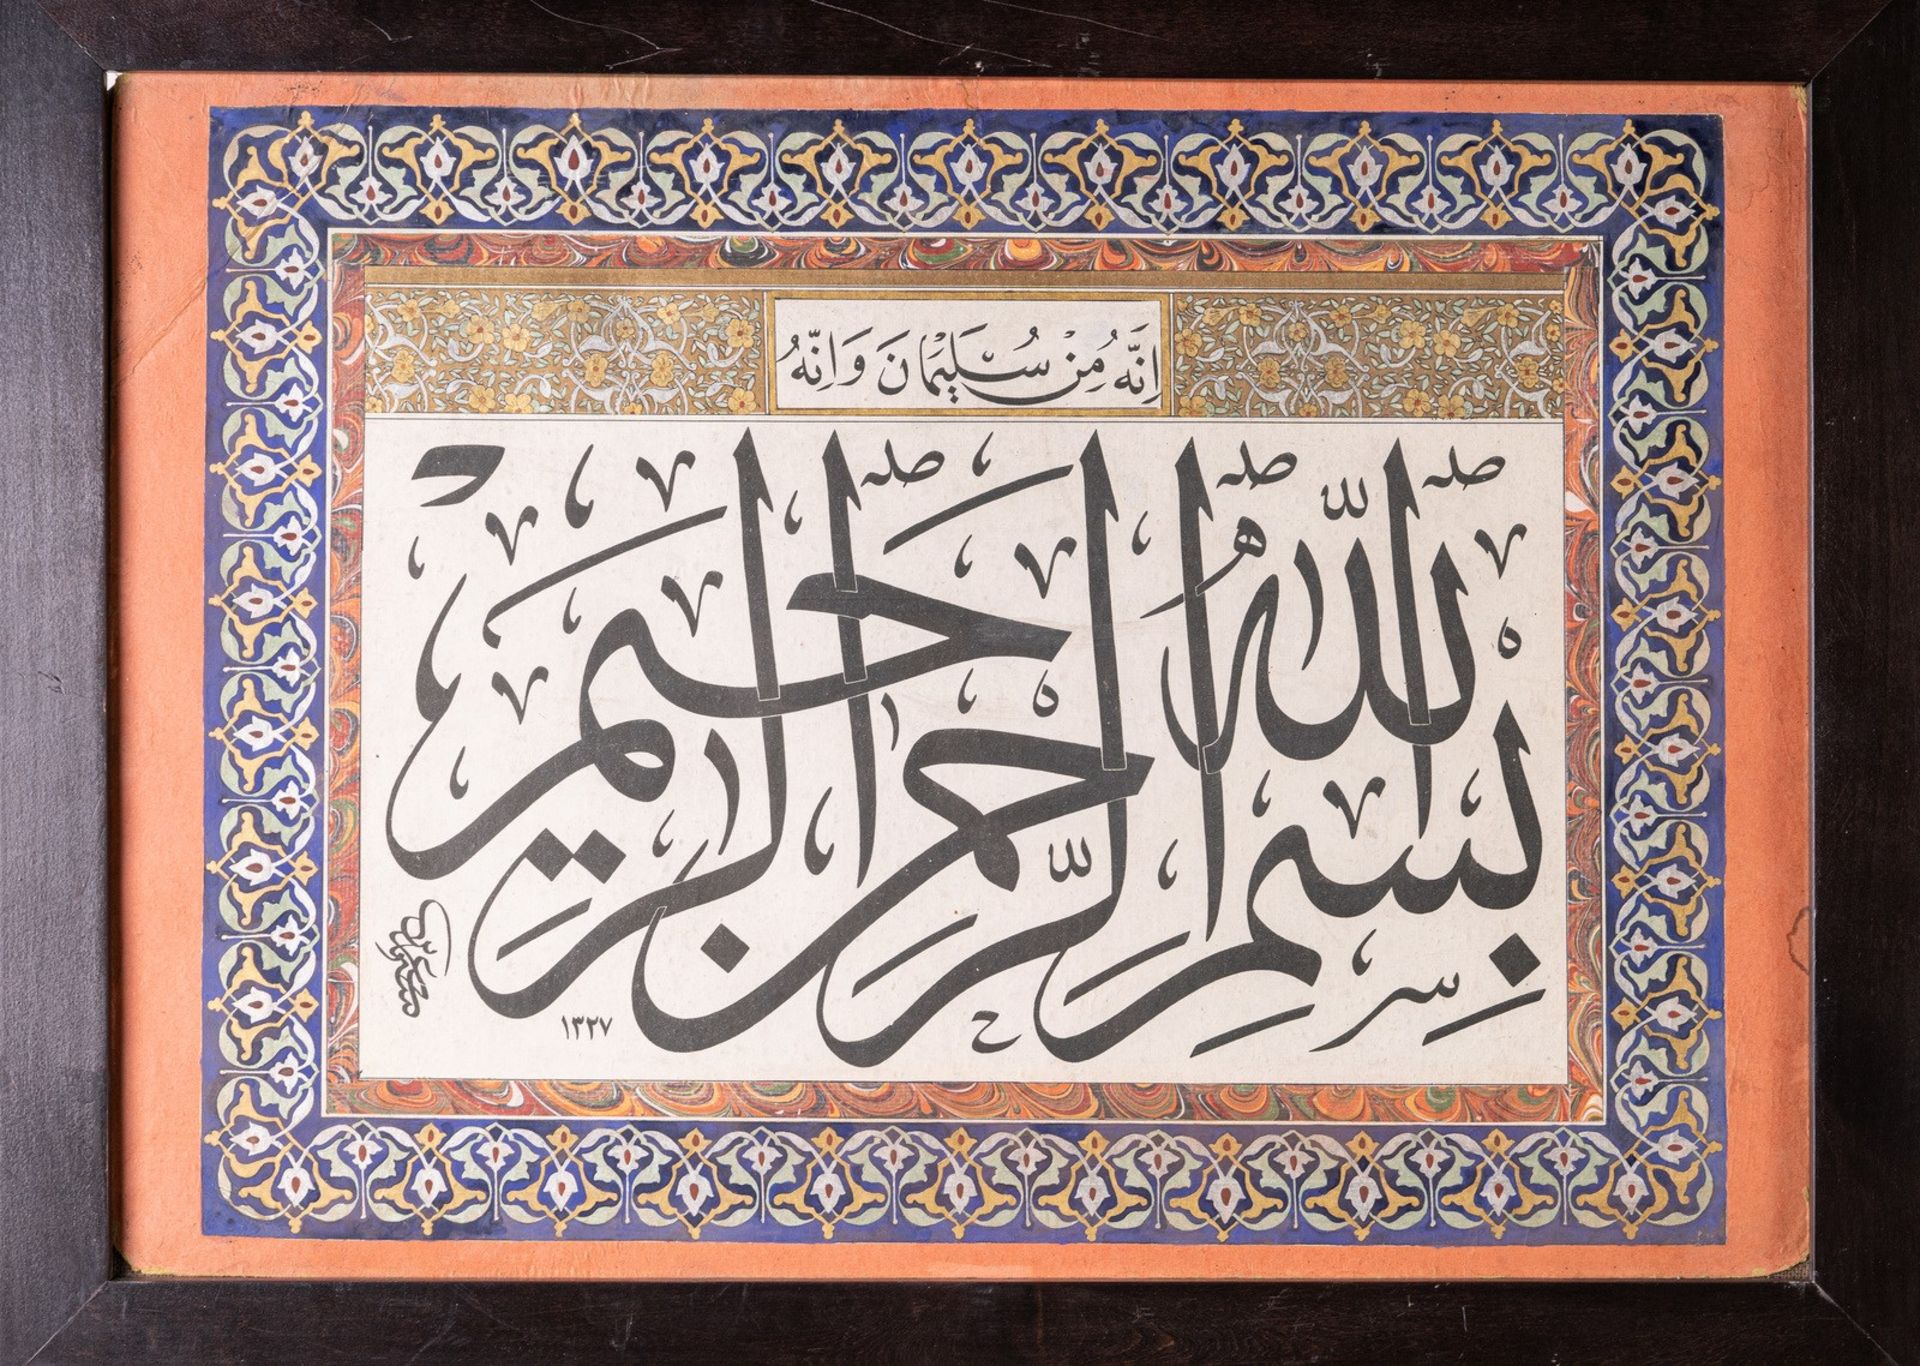 اِنَّهُ مِنْ سُلَيْمَانَ وَاِنَّهُ
بِسْمِ اللّٰهِ الرَّحْمٰنِ الرَّحِيمِ
١٣٢٧